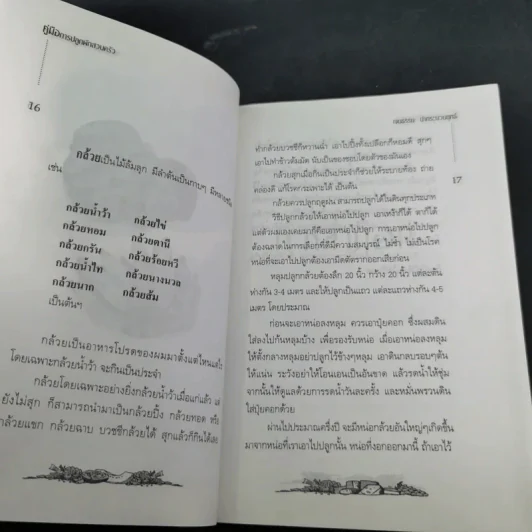 คู่มือการปลูกผักสวนครัว
16
กล้วยเป็นไม้ล้มลุก มีลำต้นเป็นกาบๆ มีหลายชนิด
เช่น
กล้วยน้ำว้า กล้วยไข่
กล้วยหอม กล้วยตานี
กล้วยกรัน กล้วยร้อยหวี
กล้วยน้ำไท กล้วยนางนวล
กล้วยนาก กล้วยส้ม
เป็นต้นฯ
กล้วยเป็นอาหารโปรดของผมมาตั้งแต่ไหนแต่ไร
โดยเฉพาะกล้วยน้ำว้า จะกินเป็นประจำ
กล้วยโดยเฉพาะอย่างยิ่งกล้วยน้ำว้าเมื่อแก่แล้ว แต่
ยังไม่สุก ก็สามารถนำมาเป็นกล้วยปิ้ง กล้วยทอด หรือ
กล้วยแขก กล้วยฉาบ บวชชีกล้วยได้ สุกแล้วก็กินได้เลย
17
ทำกล้วยบวชชีก็หวานฉ่ำ เอาไปปิ้งทั้งเปลือกก็หอมดี สุกๆ
เอาไปทำข้าวต้มมัด นับเป็นของชอบโดยตัวของมันเอง
กล้วยสุกเมื่อกินเป็นประจำก็ช่วยให้ระบายท้อง ถ่าย
คล่องดี แก้โรคกระเพาะได้ เป็นต้น
กล้วยควรปลูกฤดูฝน สามารถปลูกได้ในดินทุกประเภท
วิธีปลูกกล้วยให้เอาหน่อไปปลูก เอาเหง้าก็ได้ ตาก็ได้
แต่ตัวผมเองเคยมาก็คือเอาหน่อไปปลูก การเอาหน่อไปปลูก
ต้องฉลาดในการเลือกที่ดีมีความสมบูรณ์ ไม่ช้ำ ไม่เป็นโรค
หน่อที่จะเอาไปปลูกต้องเอามีดตัดรากออกเสียก่อน
หลุมปลูกกล้วยต้องลึก 20 นิ้ว กว้าง 20 นิ้ว แต่ละต้น
ห่างกัน 3-4 เมตร และให้ปลูกเป็นแถว แต่ละแถวห่างกัน 4-5
เมตร โดยประมาณ
ก่อนจะเอาหน่อลงหลุม ควรเอาปุ๋ยคอก ซึ่งผสมดิน
ใส่ลงไปก้นหลุมบ้าง เพื่อรองรับหน่อ เมื่อเอาหน่อลงหลุม
ให้ตั้งกลางหลุมอย่าปลูกไว้ข้างๆหลุม เอาดินกลบรอบๆต้น
ให้แน่น ระวังอย่าให้โอนเอนเป็นอันขาด แล้วรดน้ำให้ชุ่ม
จากนั้นให้ดูแลด้วยการรดน้ำวันละครั้ง และหมั่นพรวนดิน
ใส่ปุ๋ยคอกด้วย
ผ่านไปประมาณครึ่งปี จะมีหน่อกล้วยอันใหญ่ๆเกิดขึ้น
มาจากหน่อที่เราเอาไปปลูกนั้น หน่อที่งอกออกมานี้ ถ้าเอาไว้